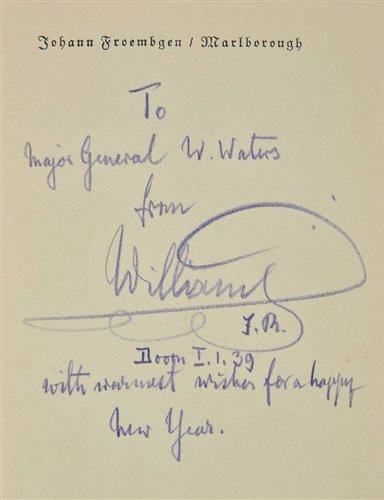 Johann Froembgen / Marlborough
To
Major General W. Waters
from
William
I.R.
Doorn I.1.39
with warmest wishes for a happy
New Year.